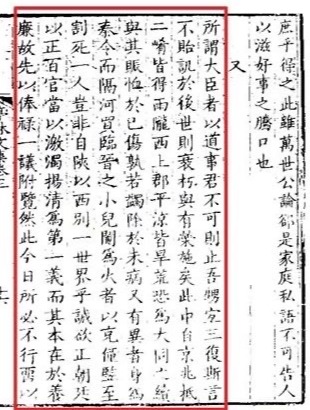 庶乎得之此雖萬世公論卻是家庭私語不可告人
以滋好事之騰口也
又
所謂大臣者以道事君不可則止吾甥宜三復斯言
不貽譏於後世則衰朽與有榮施矣此中自京兆抵
二崤皆得雨隴西上郡平涼皆旱荒恐為大同之續
與其賑恤於已傷孰若蠲除於未病又有異者身為
秦令而隔河買臨晉之小兒閹為火者以充僕豎至
割死一人豈非自陝以西別一世界乎誠欲正朝廷
以正百官當以激濁揚清爲第一義而其本在於養
廉故先以俸祿一議附覽然此今日所必不行留以
林文集卷三